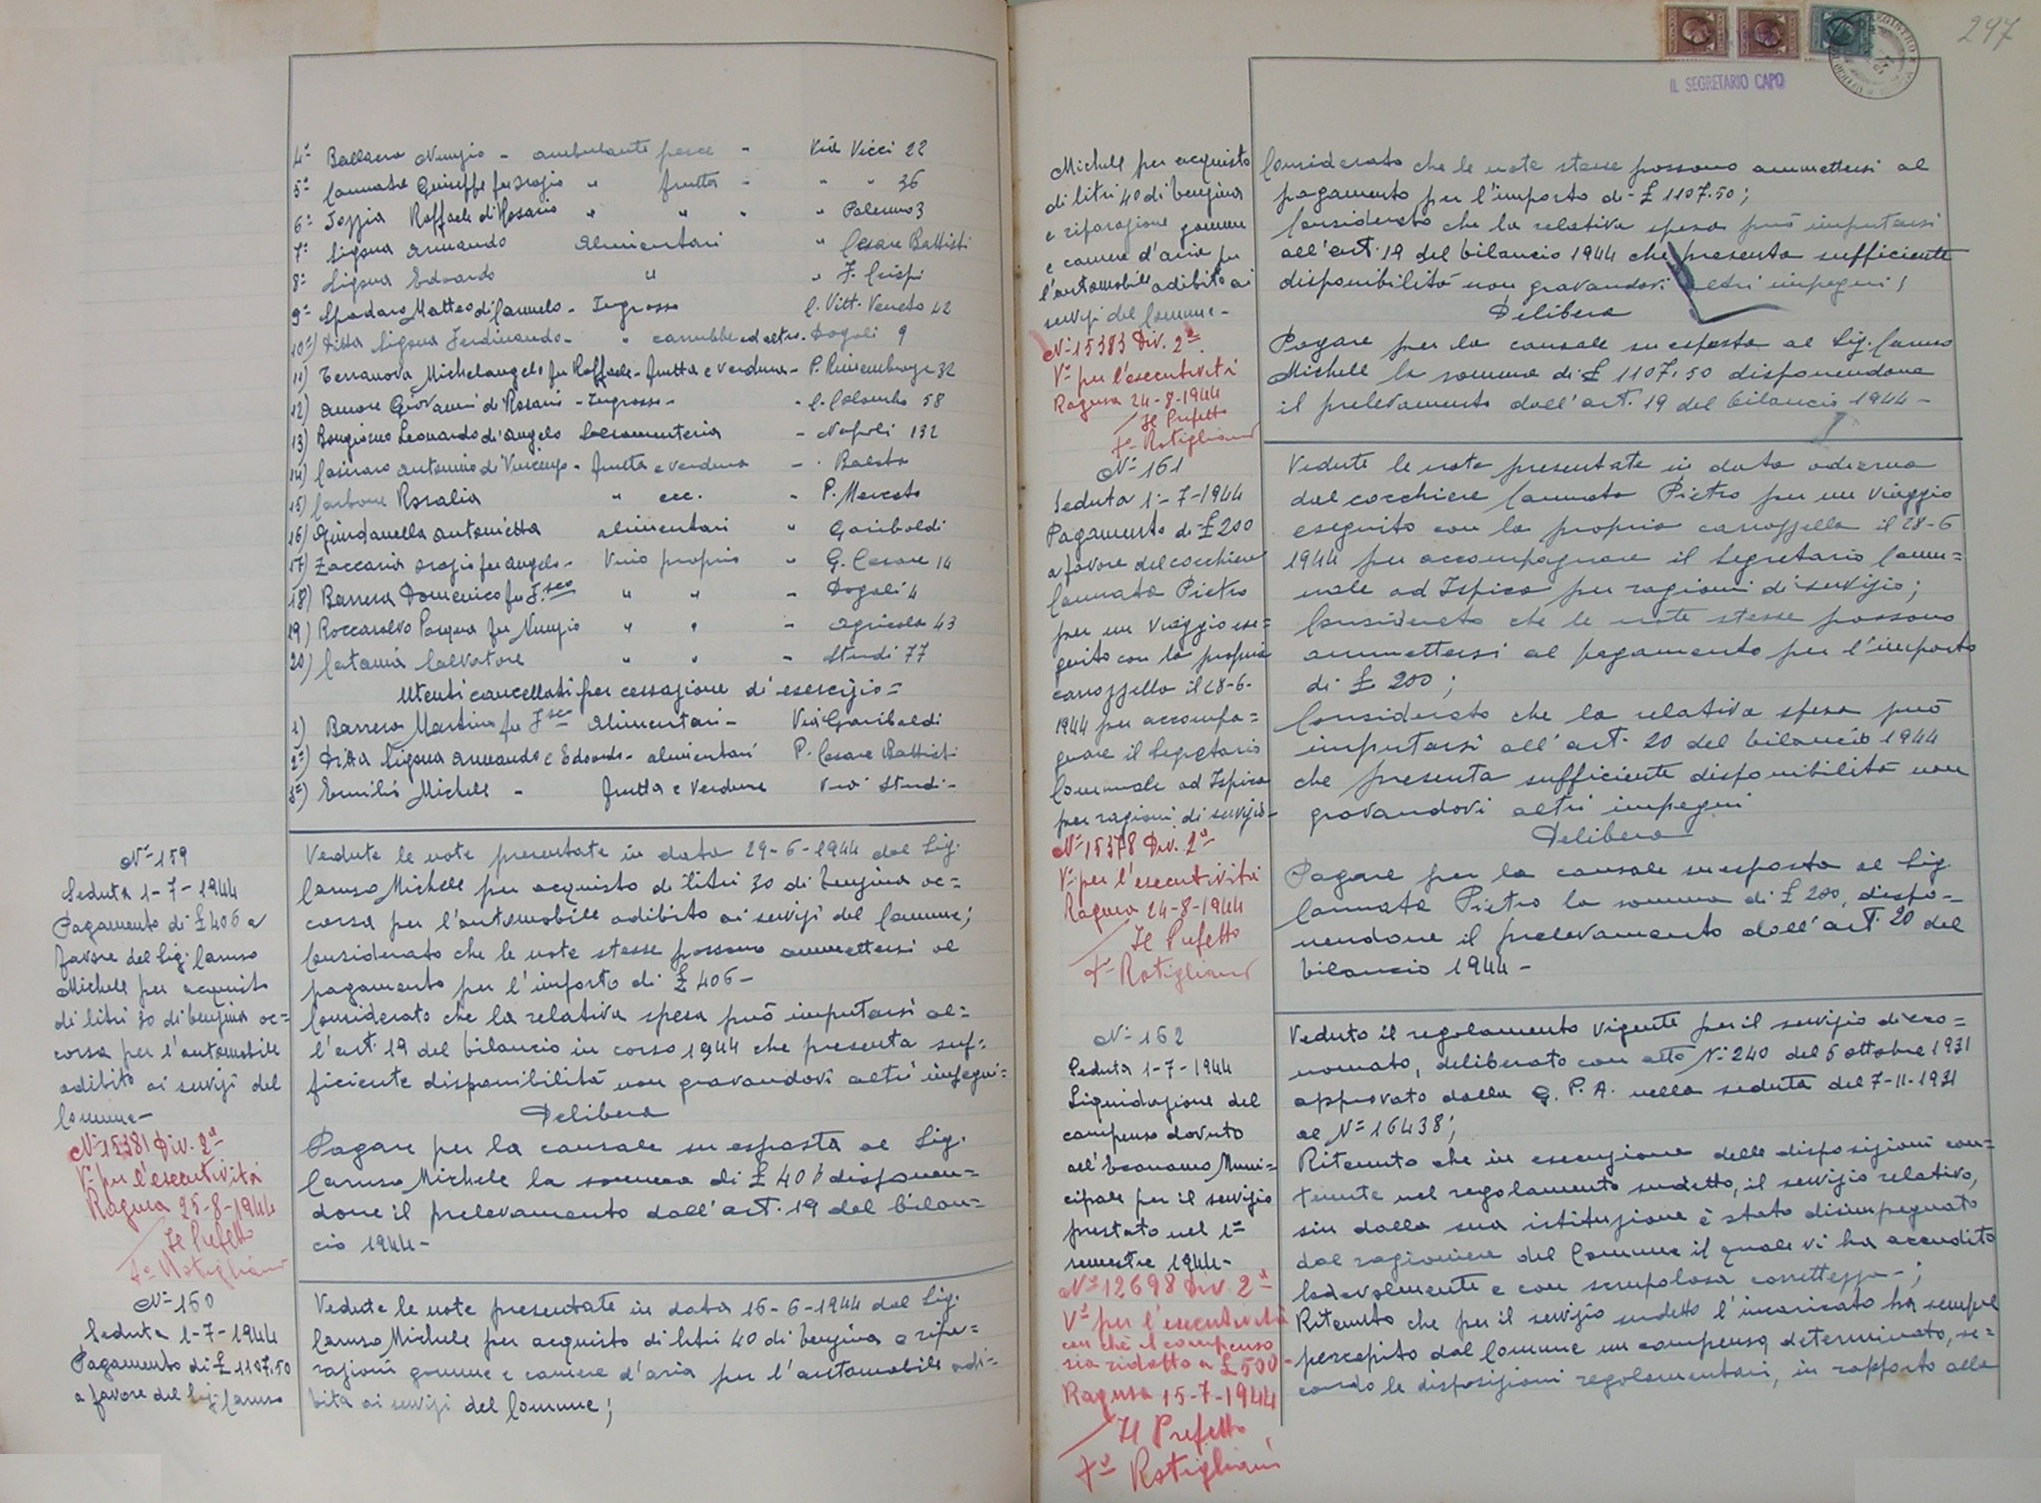 4° Ballacra Nunzio - ambulante pesce - Via Vicci 22
5° Cannata Giuseppe fu Orazio " frutta - " " 36
6° Iozzia Raffaele di Rosario " " " " Palermo 3
7° Sigona Armando Alimentari " Cesare Battisti
8° Sigona Edoardo " " F. Crispi
9° Spadaro Matteo di Carmelo - Ingrosso C. Vitt. Veneto 42
10°) Ditta Sigona Ferdinando - " carrubbe ed altro - Dogali 9
11) Terranova Michelangelo fu Raffaele - frutta e verdura - P. 32
12) Amore Giovanni di Rosario - Ingrosso - - C. Colombo 58
13) Bongiorno Leonardo d'Angelo - Napoli 132
14) Antonino di Vincenzo - frutta e verdura -
15) Carbone Rosalia " ecc. - P. Mercato
16) Giurdanella Antonietta alimentari " Garibaldi
17) Zaccaria Orazio fu Angelo - Vino proprio " G. Cesare 14
18) Barrera Domenico fu F.sco " " - Dogali 4
19) Roccasalvo Pasqua fu Nunzio " " - Agricola 43
20) Catania Salvatore " " - Studi 77
Utenti cancellati per cessazione di esercizio =
1) Barrera Martina fu F.sco Alimentari - Via Garibaldi
2°) Ditta Sigona Armando e Edoardo - alimentari P. Cesare Battisti
3°) Emilio Michele - frutta e verdure Via Studi -
N° 159
Seduta 1-7-1944
Pagamento di £ 406 a
favore del Sig. Caruso
Michele per acquisto
di litri 30 di benzina oc=
corsa per l'automobile
adibito ai servizi del
Comune -
N° 15381 Div. 2ª
V° per l'esecutività
Ragusa 25-8-1944
Il Prefetto
F° Ratiglioni
Vedute le note presentate in data 29-6-1944 dal Sig.
Caruso Michele per acquisto di litri 30 di benzina oc=
corsa per l'automobile adibito ai servizi del Comune;
Considerato che le note stesse possono ammettersi al
pagamento per l'importo di £ 406 -
Considerato che la relativa spesa può imputarsi al=
l'art. 19 del bilancio in corso 1944 che presenta suf=
ficiente disponibilità non gravandovi altri impegni =
Delibera
Pagare per la causale su esposta al Sig.
Caruso Michele la somma di £ 406 disponen=
done il prelevamento dall'art. 19 del bilan=
cio 1944 -
N° 160
Seduta 1-7-1944
Pagamento di £ 1107.50
a favore del Sig. Caruso
Vedute le note presentate in data 16-6-1944 dal Sig.
Caruso Michele per acquisto di litri 40 di benzina e ripa=
razioni gomme e camere d'aria per l'automobile adi=
bita ai servizi del Comune;
297
IL SEGRETARIO CAPO
Michele per acquisto
di litri 40 di benzina
e riparazione gomme
e camere d'aria per
l'automobile adibito ai
servizi del Comune -
N° 15383 Div. 2ª
V° per l'esecutività
Ragusa 24-8-1944
Il Prefetto
F° Ratiglioni
Considerato che le note stesse possono ammettersi al
pagamento per l'importo di £ 1107.50;
Considerato che la relativa spesa può imputarsi
all'art. 19 del bilancio 1944 che presenta sufficiente
disponibilità non gravandovi altri impegni;
Delibera
Pagare per la causale su esposta al Sig. Caruso
Michele la somma di £ 1107.50 disponendone
il prelevamento dall'art. 19 del bilancio 1944 -
N° 161
Seduta 1-7-1944
Pagamento di £ 200
a favore del cocchiere
Cannata Pietro
per un viaggio ese=
guito con la propria
carrozzella il 28-6-
1944 per accompa=
gnare il Segretario
Comunale ad Ispica
per ragioni di servizio -
N° 15378 Div. 2ª
V° per l'esecutività
Ragusa 24-8-1944
Il Prefetto
F° Ratiglioni
Vedute le note presentate in data odierna
dal cocchiere Cannata Pietro per un viaggio
eseguito con la propria carrozzella il 28-6
1944 per accompagnare il Segretario Comu=
nale ad Ispica per ragioni di servizio;
Considerato che le note stesse possono
ammettersi al pagamento per l'importo
di £ 200;
Considerato che la relativa spesa può
imputarsi all'art. 20 del bilancio 1944
che presenta sufficiente disponibilità non
gravandovi altri impegni
Delibera
Pagare per la causale su esposta al Sig
Cannata Pietro la somma di £ 200, dispo=
nendone il prelevamento dall'art. 20 del
bilancio 1944 -
N° 162
Seduta 1-7-1944
Liquidazione del
compenso dovuto
all'Economo Muni=
cipale per il servizio
prestato nel 1°
semestre 1944 -
N° 12698 Div. 2ª
V° per l'esecutività
con chè il compenso
sia ridotto a £ 500 -
Ragusa 15-7-1944
Il Prefetto
F° Ratiglioni
Veduto il regolamento vigente per il servizio di eco=
nomato, deliberato con atto N° 240 del 5 ottobre 1931
approvato dalla G. P. A. nella seduta del 7-11-1931
al N° 16438;
Ritenuto che in esecuzione delle disposizioni con=
tenute nel regolamento sudetto, il servizio relativo,
sin dalla sua istituzione è stato disimpegnato
dal ragioniere del Comune il quale vi ha accudito
lodevolmente e con scrupolosa correttezza -;
Ritenuto che per il servizio sudetto l'incaricato ha sempre
percepito dal Comune un compenso determinato, se=
condo le disposizioni regolamentari, in rapporto alla